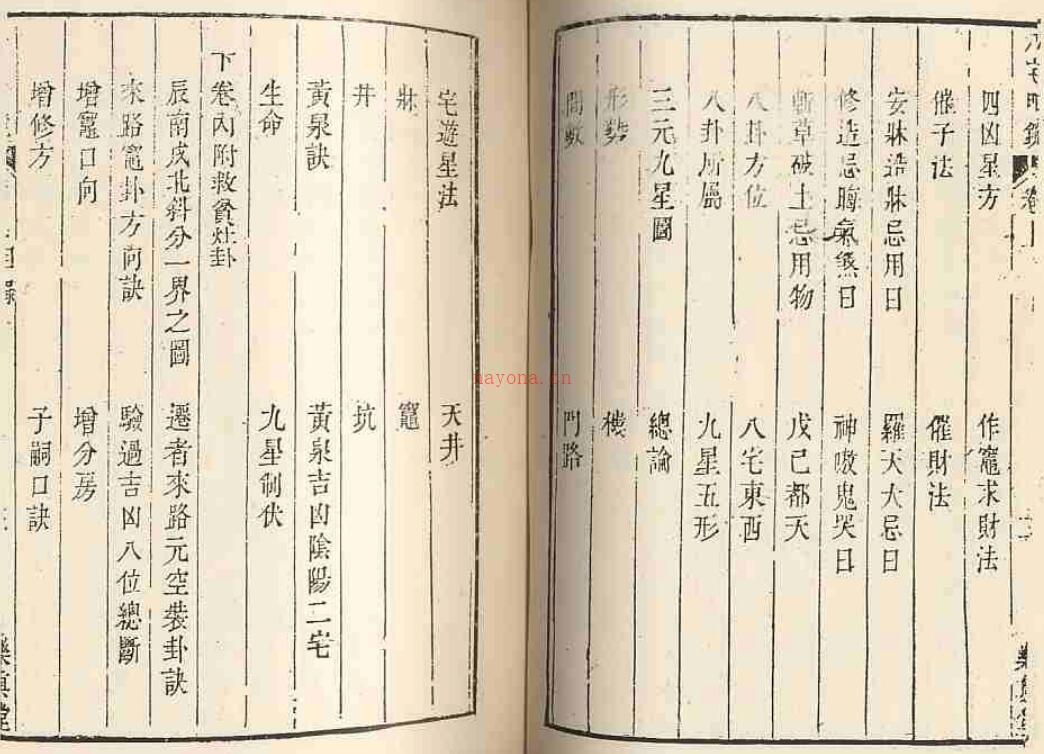 八宅明鏡 卷
四凶星方 作竈求財法
催子法 催財法
安牀造牀忌用日 羅天大忌日
修造忌晦氣煞日 神嗷鬼哭日
斬草破土忌用物 戊己都天
八卦方位 八宅東西
八卦所屬 九星五形
三元九星圖 總論
形勢 棧
間數 門路
宅遊星法 天井
牀 竈
井 坑
黃泉訣 黃泉吉凶陰陽二宅
生命 九星制伏
下卷內附救貧灶卦
辰南戌北斜分一界之圖 遷者來路元空裝卦訣
來路竈卦方向訣 驗過吉凶八位總斷
增竈口向 增分房
增修方 子嗣口訣
目錄
樂真堂
nayona.cn